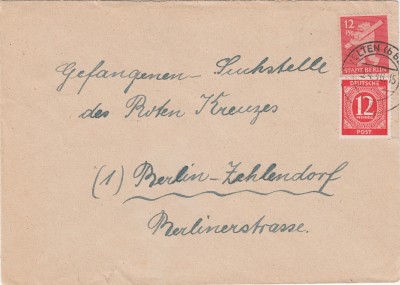 12
STADT BERLIN
DEUTSCHE
12
PFENNIG
POST
Gefangenen-Suchstelle
des Roten Kreuzes
(1) Berlin-Zehlendorf
Berlinerstrasse.